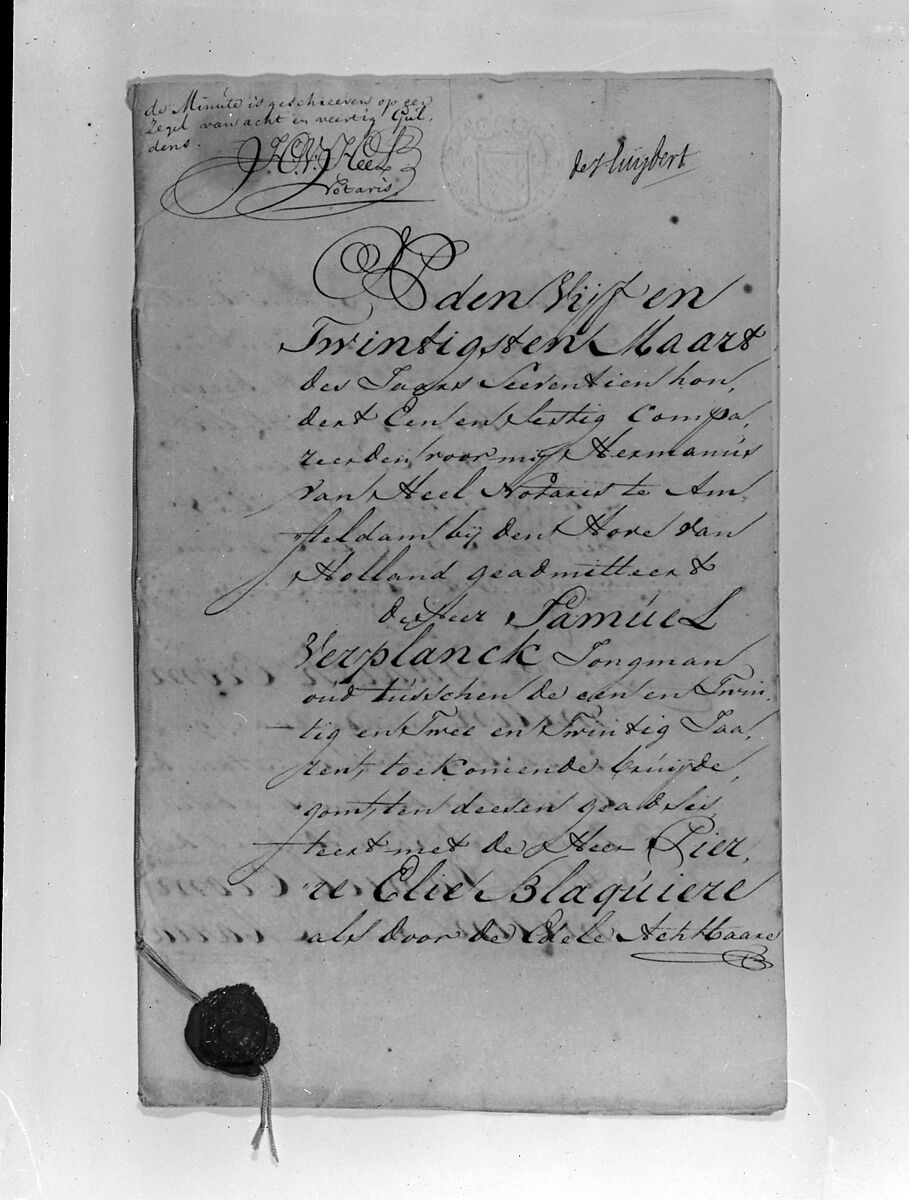 de Minúte is geschreeven op een
Zegel van acht en veertig Gúl,
dens.
H. V. Heel
Notaris
de Húÿbert
Op den Vijf en
Twintigsten Maart
des Jaars Seeventien hon,
dert Een en Sestig Compa,
reerden voor mij Hermanús
van Heel Notaris te Am,
steldam bij den Hove van
Holland geadmitteert
de Heer Samúel
Verplanck Jongman
oud tússchen de een en Twin,
tig en Twee en Twintig Jaa,
ren, toekomende brúijde,
gom, ten deesen geadsis,
teert met de Heer Pier,
re Elie Blaqúiere
als door de Edele Achtbaare